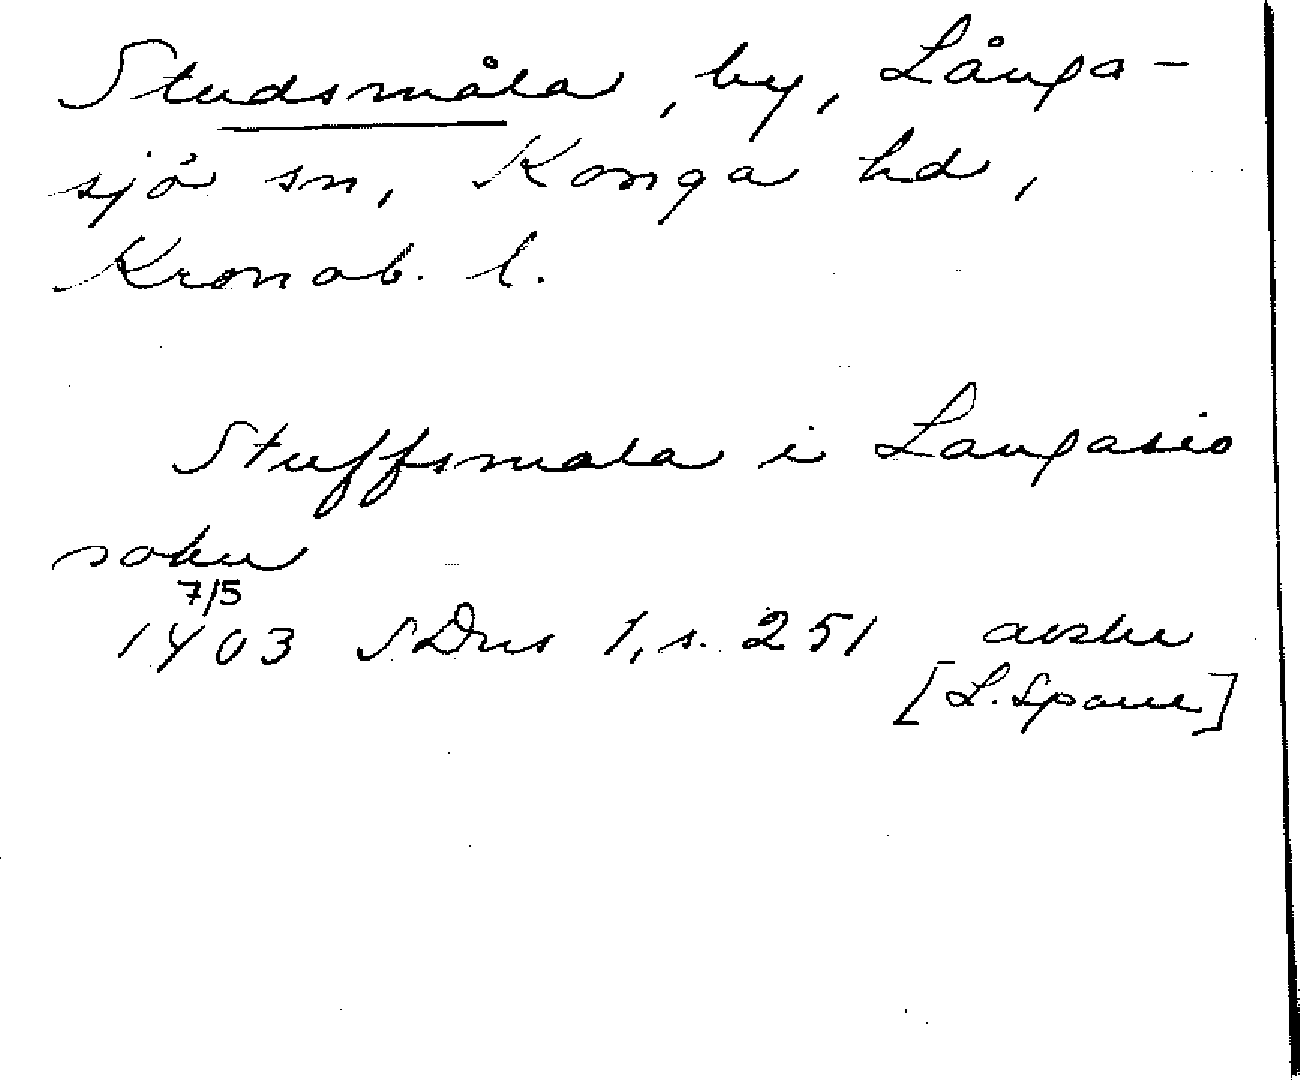 Studsmåla, by, Långa-
sjö sn, Konga hd,
Kronob. l.
Stuffsmala i Langasio
sokn
7/5
1403 SDns 1, s. 251 avskr
[L. Spane]